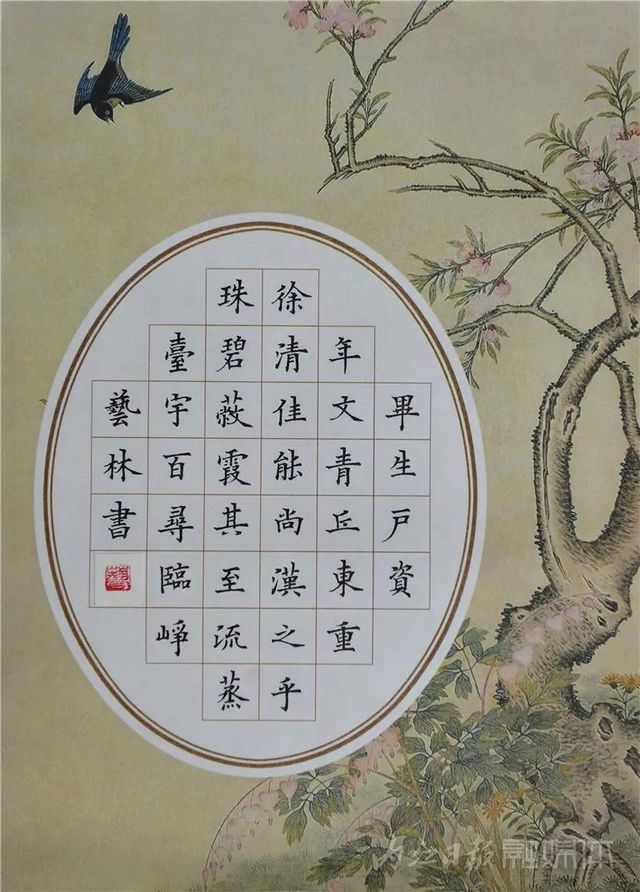 畢生戶資
年文青丘東重
徐清佳能尚漢之乎
珠碧薇霞其至流蒸
臺宇百尋臨崢
藝林書
内江日报融媒体